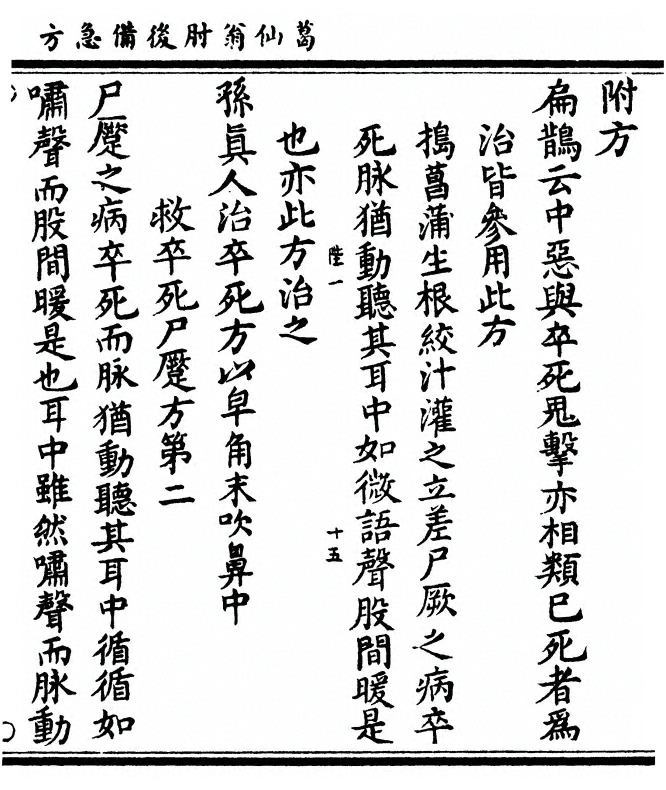 葛仙翁肘後備急方
附方
扁鵲云中惡與卒死鬼擊亦相類已死者爲
治皆參用此方
搗菖蒲生根絞汁灌之立差尸厥之病卒
死脉猶動聽其耳中如微語聲股間暖是
陸一
十五
也亦此方治之
孫眞人治卒死方以皁角末吹鼻中
救卒死尸蹷方第二
尸蹷之病卒死而脉猶動聽其耳中循循如
嘯聲而股間暖是也耳中雖然嘯聲而脉動